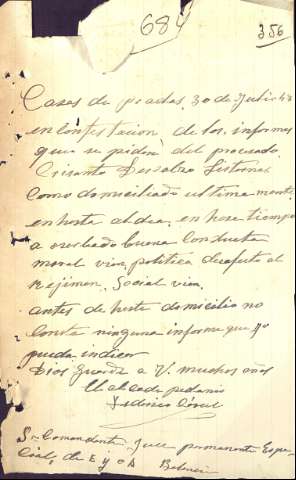 684
356
Casas de pradas, 30 de Julio
en contestacion de los informes
que se piden del procesado
Crisanto Sisternas
como domiciliado ultima mente
en hesta aldea, en hese tiempo
a buena conducta
moral vien, politica desafeto al
Rejimen, Social vien.
antes de heste domicilio no
Consta ninguna informe que yo
pueda indicar
Dios guarde a V. muchos años
El alcade pedanio
Federico
Sr Comandante Juez permanente Espe-
cial, de E y O A